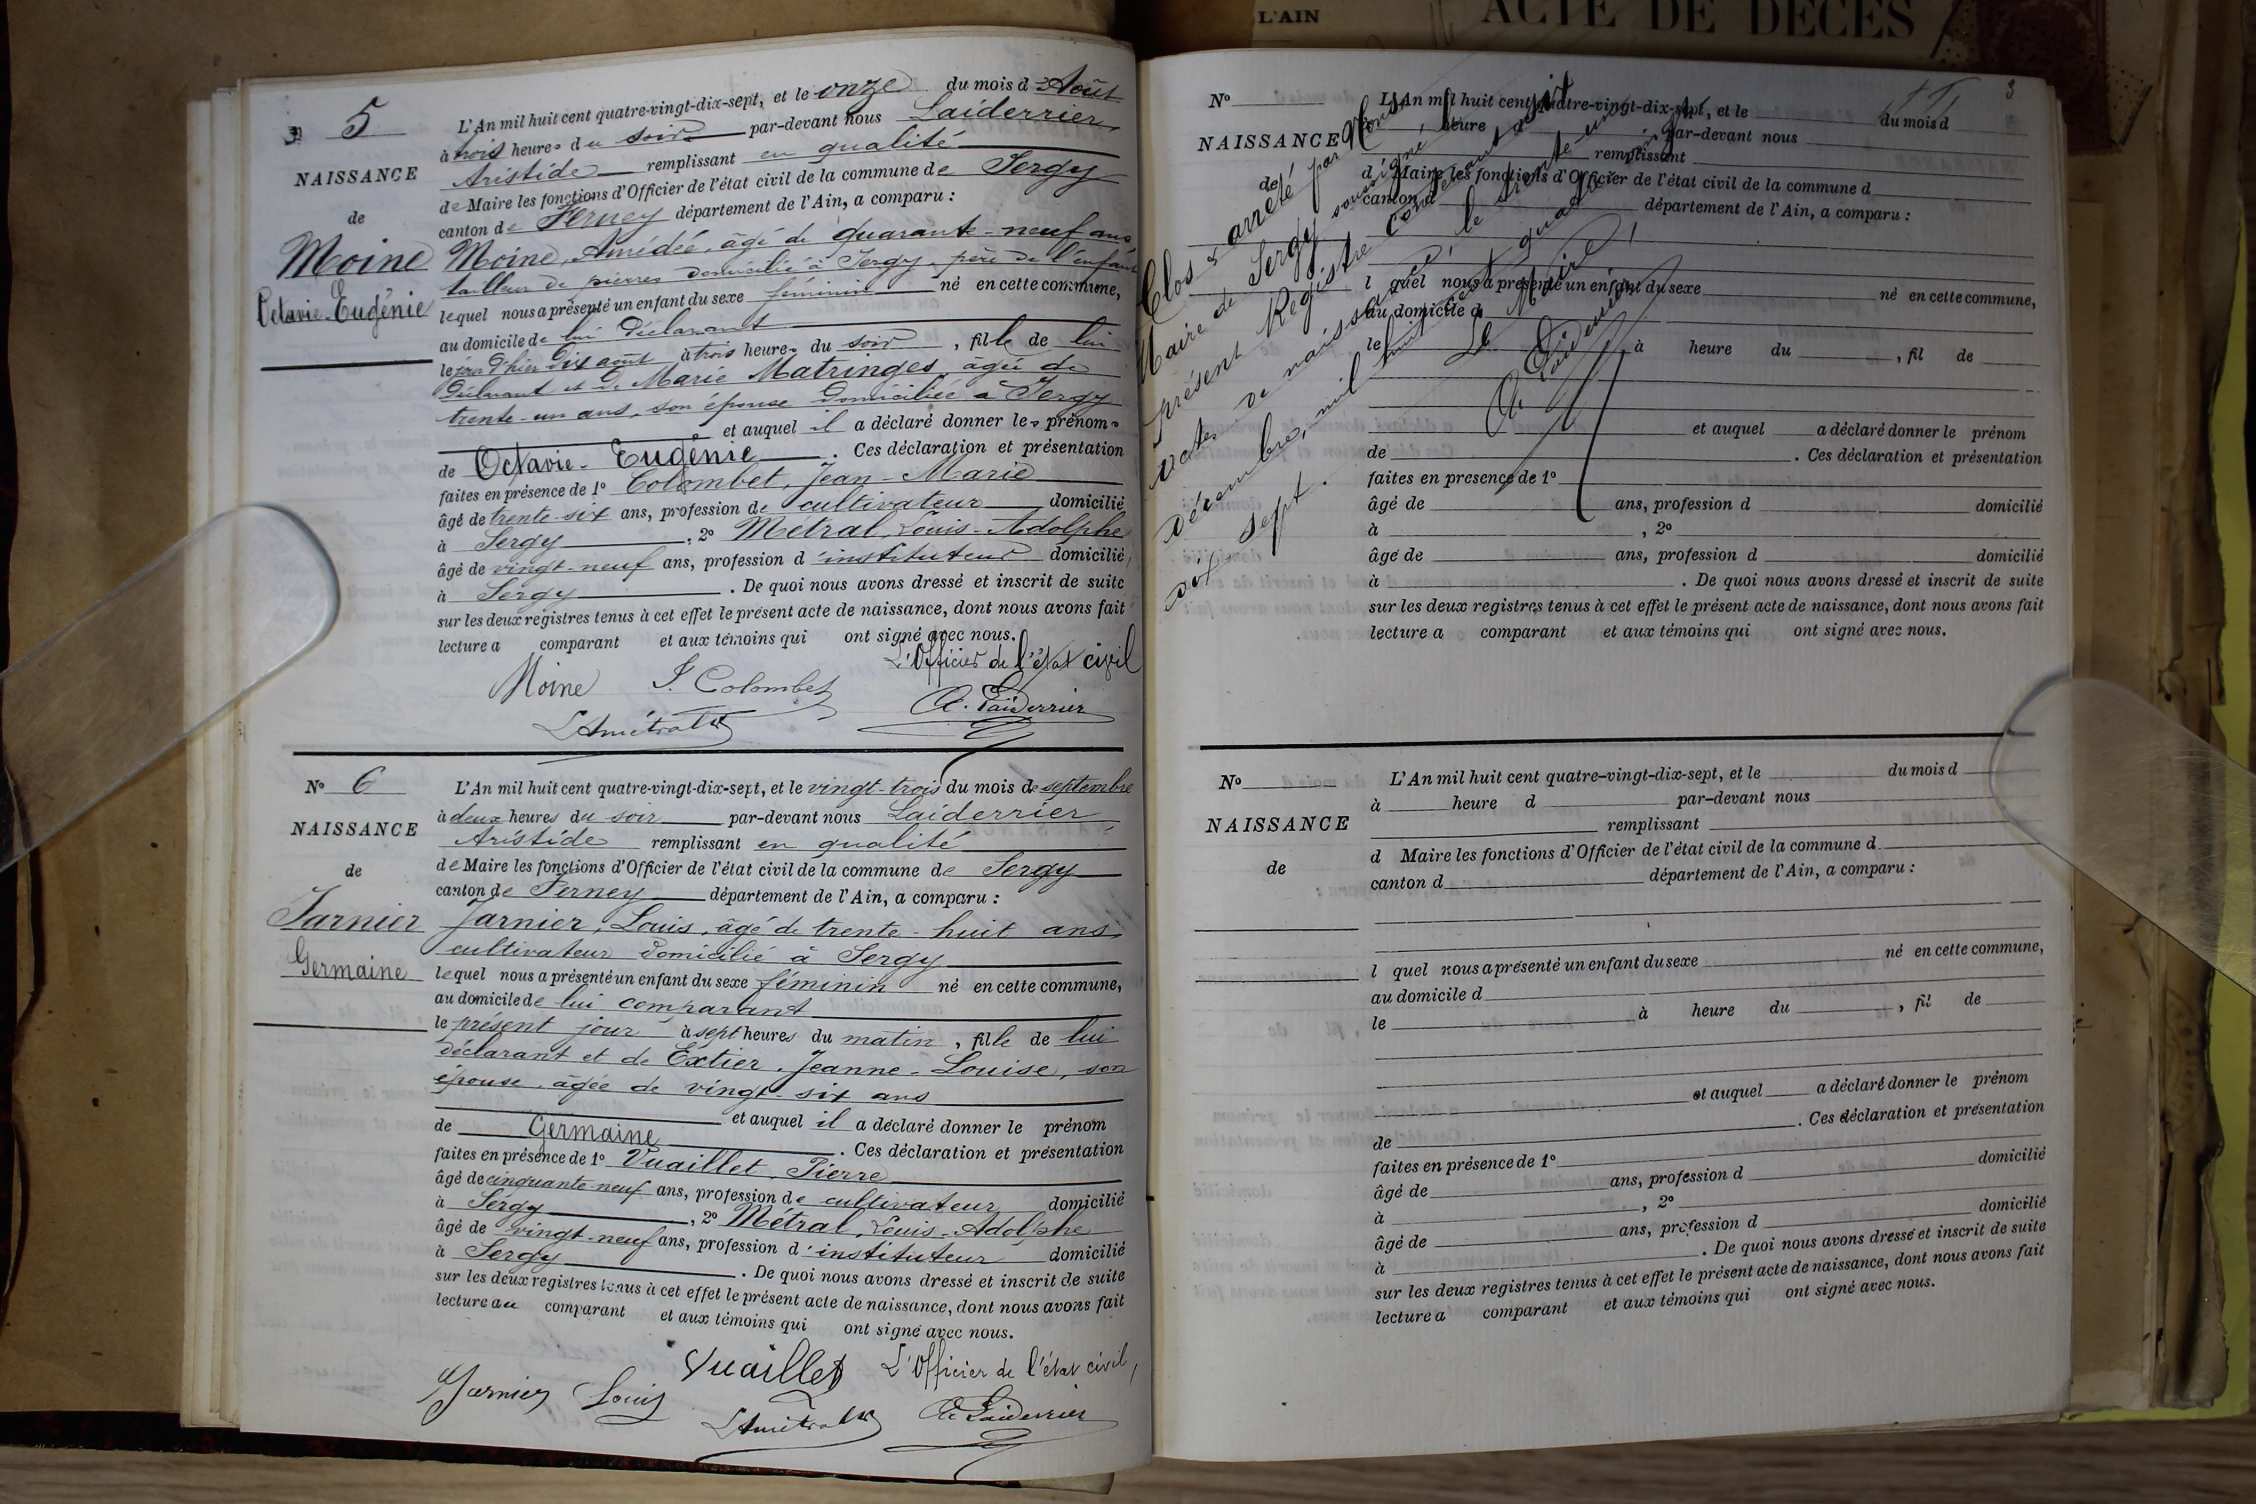 L'AIN
ACTE DE DÉCÈS
5
NAISSANCE
de
Moine
Octavie-Eugénie
L'An mil huit cent quatre-vingt-dix-sept, et le onze du mois d'Août
à trois heures du soir par-devant nous Laiderrier,
Aristide remplissant en qualité
de Maire les fonctions d'Officier de l'état civil de la commune de Sergy
canton de Ferney département de l'Ain, a comparu :
Moine, Amédée, âgé de quarante-neuf ans,
tailleur de pierres domicilié à Sergy, père de l'enfant
lequel nous a présenté un enfant du sexe féminin né en cette commune,
au domicile de lui déclarant
le jour d'hier dix août à trois heures du soir, fille de lui
déclarant et de Marie Matringes, âgée de
trente-un ans, son épouse domiciliée à Sergy
et auquel il a déclaré donner les prénoms
de Octavie-Eugénie. Ces déclaration et présentation
faites en présence de 1º Colombet, Jean-Marie
âgé de trente-six ans, profession de cultivateur domicilié
à Sergy, 2º Métral, Louis-Adolphe
âgé de vingt-neuf ans, profession d'instituteur domicilié,
à Sergy. De quoi nous avons dressé et inscrit de suite
sur les deux registres tenus à cet effet le présent acte de naissance, dont nous avons fait
lecture a comparant et aux témoins qui ont signé avec nous.
L'Officier de l'état civil
Moine J. Colombet A. Laiderrier
LAmétral
Nº 6
NAISSANCE
de
Jarnier
Germaine
L'An mil huit cent quatre-vingt-dix-sept, et le vingt-trois du mois de septembre
à deux heures du soir par-devant nous Laiderrier,
Aristide remplissant en qualité
de Maire les fonctions d'Officier de l'état civil de la commune de Sergy
canton de Ferney département de l'Ain, a comparu :
Jarnier, Louis, âgé de trente-huit ans,
cultivateur domicilié à Sergy
lequel nous a présenté un enfant du sexe féminin né en cette commune,
au domicile de lui comparant
le présent jour à sept heures du matin, fille de lui
déclarant et de Extier, Jeanne-Louise, son
épouse, âgée de vingt-six ans
et auquel il a déclaré donner le prénom
de Germaine. Ces déclaration et présentation
faites en présence de 1º Vuaillet, Pierre
âgé de cinquante-neuf ans, profession de cultivateur domicilié
à Sergy, 2º Métral, Louis-Adolphe
âgé de vingt-neuf ans, profession d'instituteur domicilié
à Sergy. De quoi nous avons dressé et inscrit de suite
sur les deux registres tenus à cet effet le présent acte de naissance, dont nous avons fait
lecture au comparant et aux témoins qui ont signé avec nous.
Vuaillet L'Officier de l'état civil,
Jarnier Louis LAmétral A. Laiderrier
3
Nº
NAISSANCE
de
L'An mil huit cent quatre-vingt-dix-sept, et le du mois d
heure par-devant nous
remplissant
d Maire les fonctions d'Officier de l'état civil de la commune d
canton d département de l'Ain, a comparu :
l quel nous a présenté un enfant du sexe né en cette commune,
au domicile d
le à heure du , fil de
et auquel a déclaré donner le prénom
de . Ces déclaration et présentation
faites en présence de 1º
âgé de ans, profession d domicilié
à , 2º
âgé de ans, profession d domicilié
à . De quoi nous avons dressé et inscrit de suite
sur les deux registres tenus à cet effet le présent acte de naissance, dont nous avons fait
lecture a comparant et aux témoins qui ont signé avec nous.
Clos & arrêté par Nous,
Maire de Sergy soussigné, le
présent Registre contenant
actes de naissance, le trente un
décembre, mil huit cent quatre vingt
dix sept.
Le Maire,
A. Laiderrier
Nº
NAISSANCE
de
L'An mil huit cent quatre-vingt-dix-sept, et le du mois d
à heure d par-devant nous
remplissant
d Maire les fonctions d'Officier de l'état civil de la commune d
canton d département de l'Ain, a comparu :
l quel nous a présenté un enfant du sexe né en cette commune,
au domicile d
le à heure du , fil de
et auquel a déclaré donner le prénom
de . Ces déclaration et présentation
faites en présence de 1º
âgé de ans, profession d domicilié
à , 2º
âgé de ans, profession d domicilié
à . De quoi nous avons dressé et inscrit de suite
sur les deux registres tenus à cet effet le présent acte de naissance, dont nous avons fait
lecture a comparant et aux témoins qui ont signé avec nous.